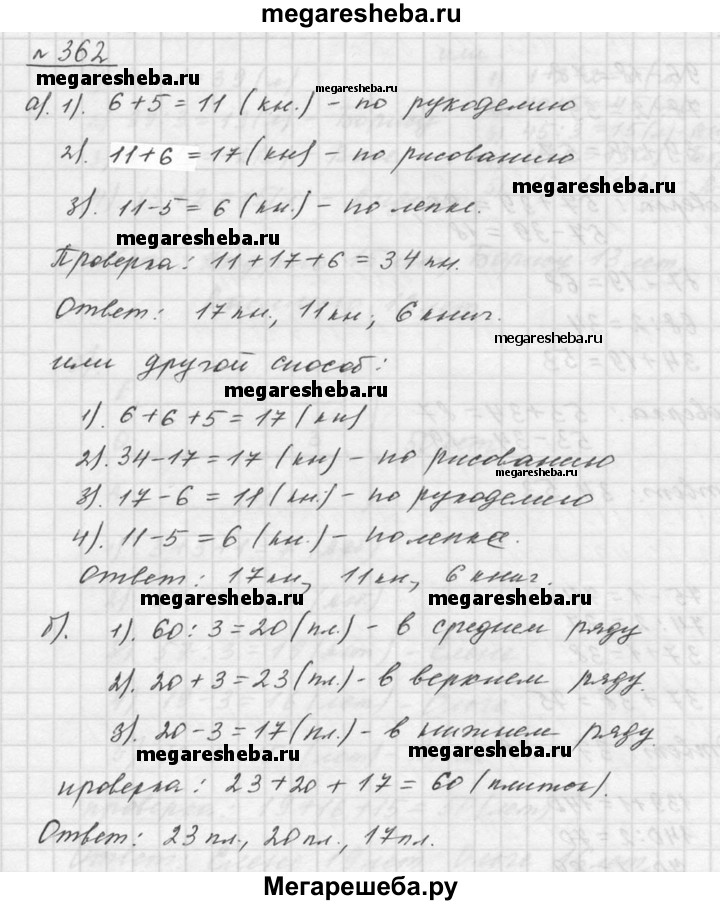 megaresheba.ru
№ 362
megaresheba.ru
а). 1). 6+5=11 (кн.) - по рукоделию
megaresheba.ru
2). 11+6=17 (кн) - по рисованию
megaresheba.ru
3). 11-5=6 (кн.) - по лепке.
megaresheba.ru
Проверка: 11+17+6=34 кн.
Ответ: 17 кн., 11 кн, 6 книг.
megaresheba.ru
или другой способ:
megaresheba.ru
1). 6+6+5=17 (кн)
2). 34-17=17 (кн) - по рисованию
megaresheba.ru
3). 17-6=11 (кн) - по рукоделию
4). 11-5=6 (кн.) - по лепке.
Ответ: 17 кн, 11 кн, 6 книг.
megaresheba.ru megaresheba.ru
б). 1). 60:3=20 (пл.) - в среднем ряду
2). 20+3=23 (пл.) - в верхнем ряду.
3). 20-3=17 (пл.) - в нижнем ряду.
megaresheba.ru megaresheba.ru
проверка: 23+20+17=60 (плиток).
Ответ: 23 пл., 20 пл., 17 пл.
Мегарешеба.ру